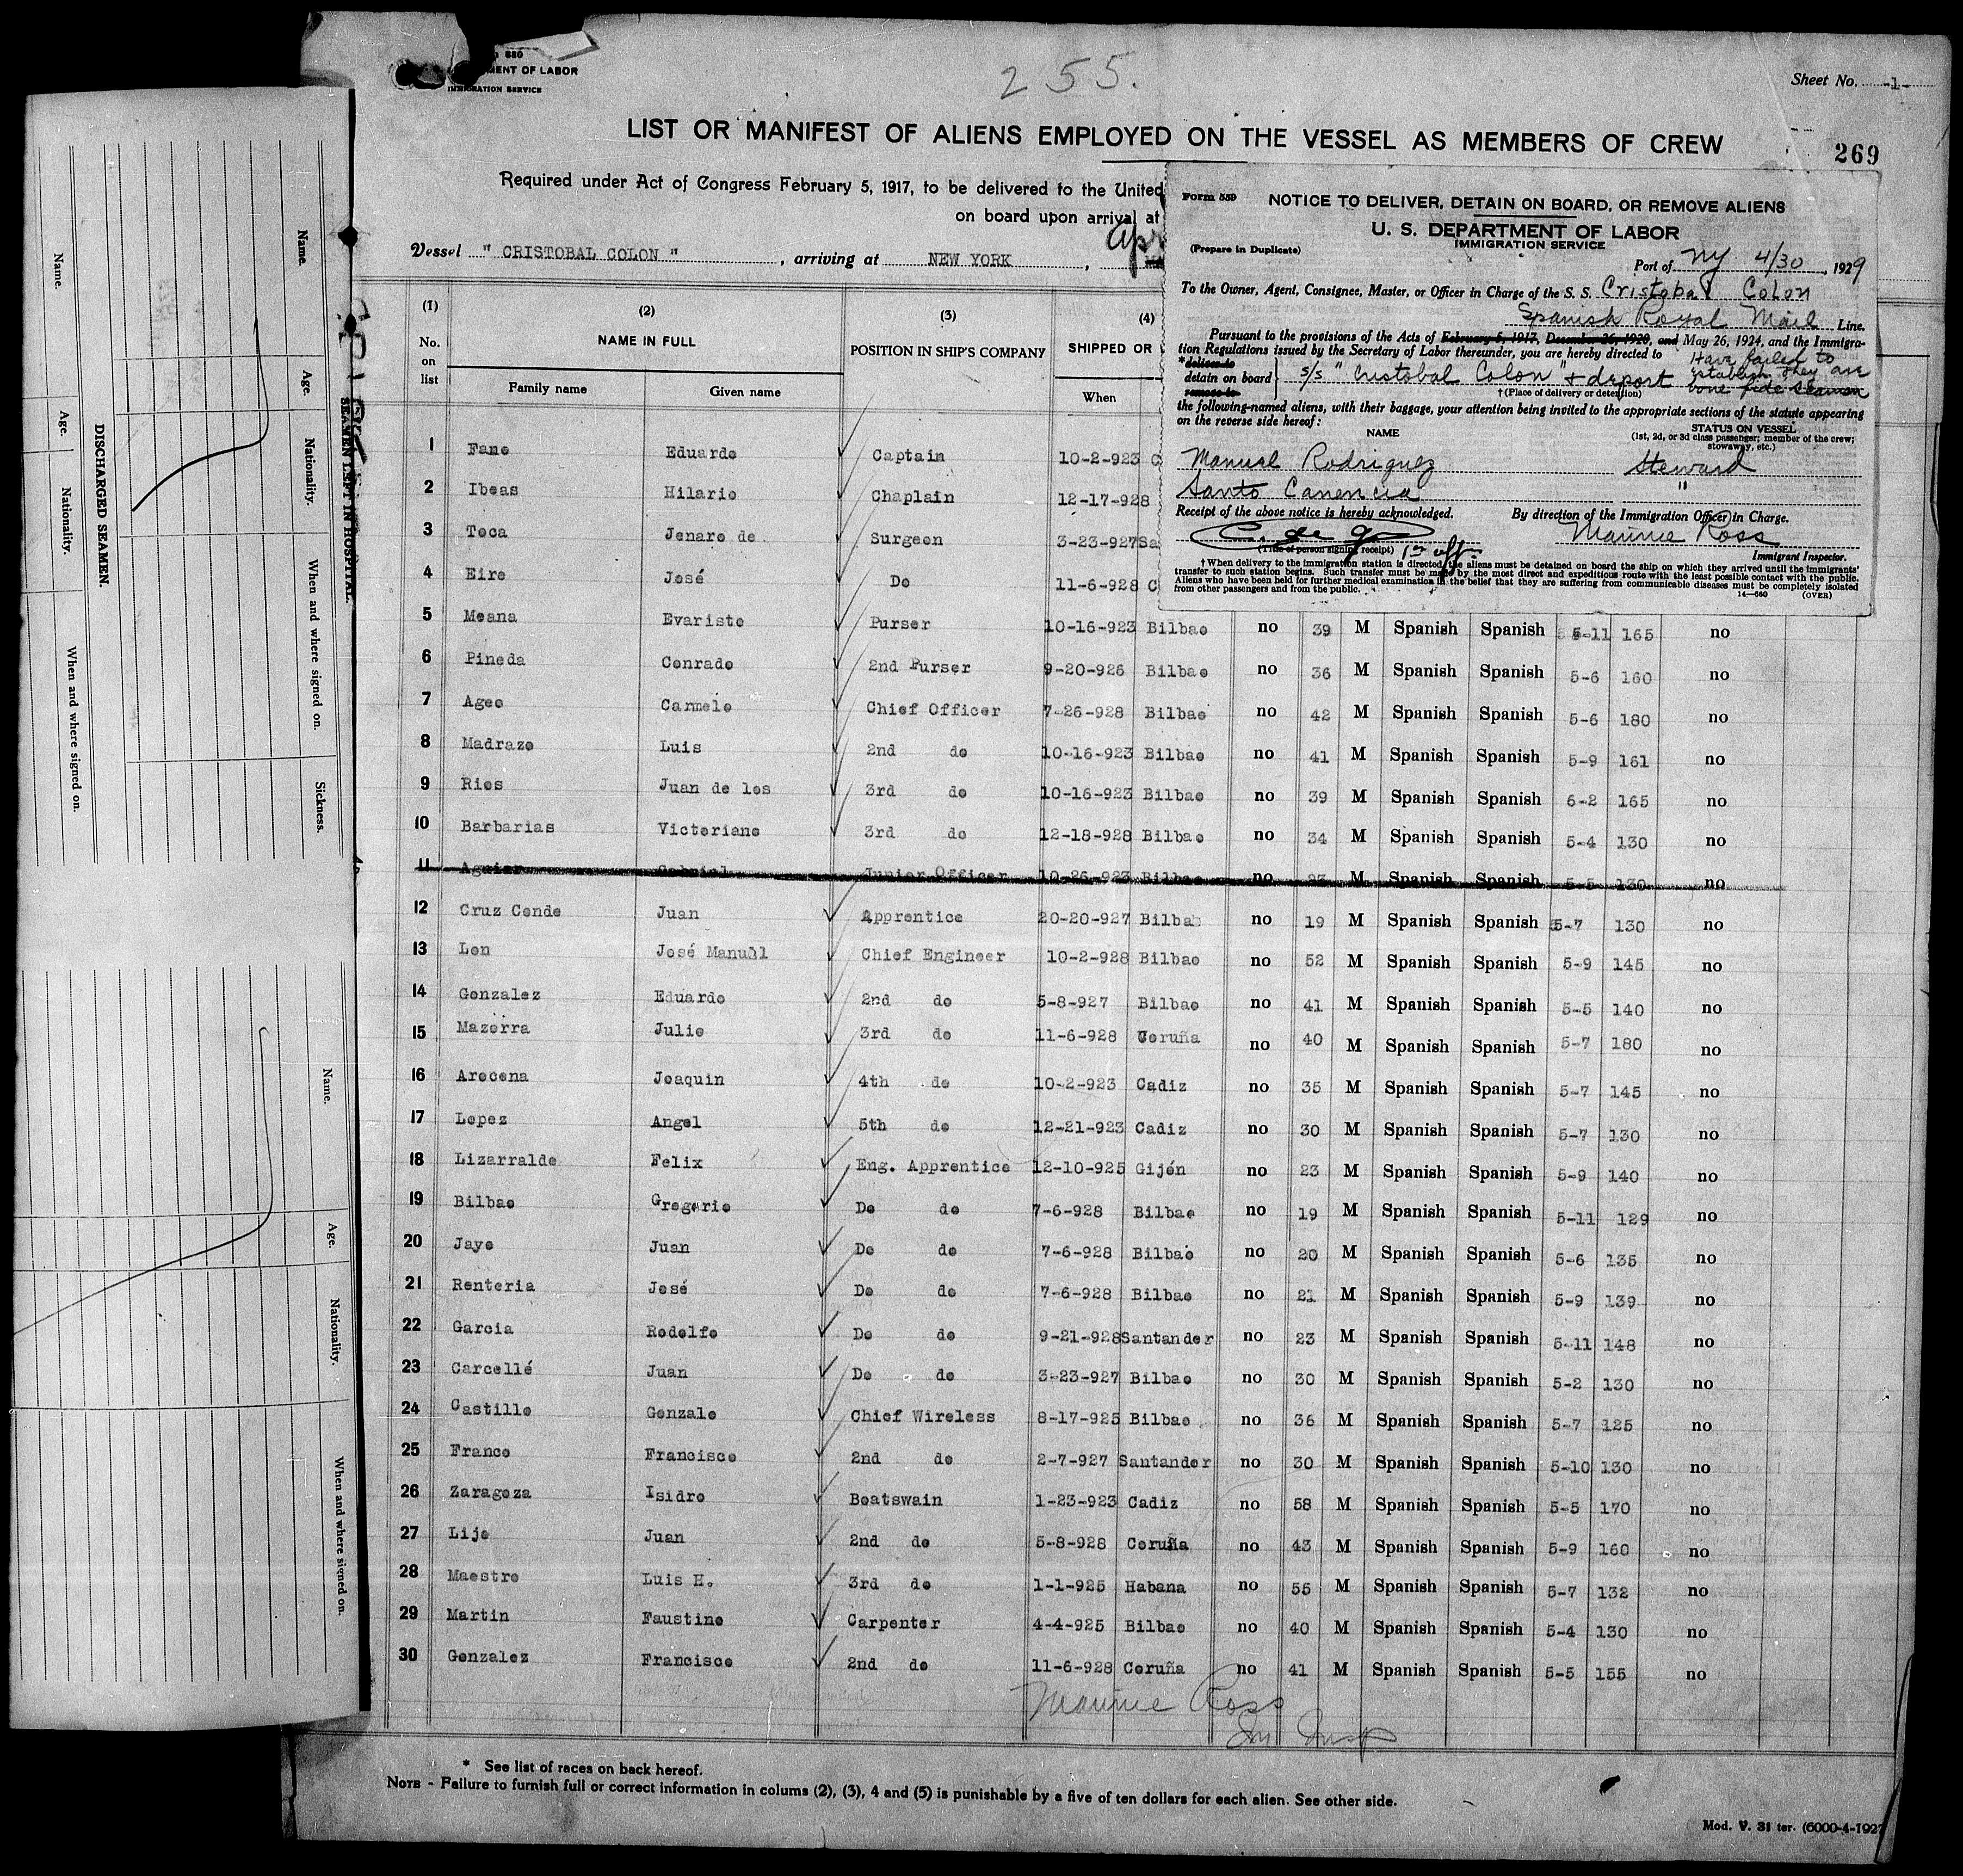 880
MENT OF LABOR
IMMIGRATION SERVICE
255.
Sheet No. -1-
LIST OR MANIFEST OF ALIENS EMPLOYED ON THE VESSEL AS MEMBERS OF CREW
269
Required under Act of Congress February 5, 1917, to be delivered to the United
on board upon arrival at
Vessel " CRISTOBAL COLON " , arriving at NEW YORK , Apr
Form 559 NOTICE TO DELIVER, DETAIN ON BOARD, OR REMOVE ALIENS
U. S. DEPARTMENT OF LABOR
IMMIGRATION SERVICE
(Prepare in Duplicate)
Port of NY 4/30, 1929
To the Owner, Agent, Consignee, Master, or Officer in Charge of the S. S. Cristobal Colon
Spanish Royal Mail Line.
Pursuant to the provisions of the Acts of February 5, 1917, December 26, 1920, and May 26, 1924, and the Immigra-
tion Regulations issued by the Secretary of Labor thereunder, you are hereby directed to
Have failed to
establish they are
bona fide seamen
*deliver to
detain on board
remove to
s/s "Cristobal Colon" & deport
† (Place of delivery or detention)
the following-named aliens, with their baggage, your attention being invited to the appropriate sections of the statute appearing
on the reverse side hereof:
NAME
STATUS ON VESSEL
(1st, 2d, or 3d class passenger; member of the crew;
stowaway, etc.)
Manuel Rodriguez Steward
Santo Canencia "
Receipt of the above notice is hereby acknowledged.
By direction of the Immigration Officer in Charge.
Maurice Ross
(Title of person signing receipt) 1st off.
Immigrant Inspector.
† When delivery to the immigration station is directed, the aliens must be detained on board the ship on which they arrived until the immigrants'
transfer to such station begins. Such transfer must be made by the most direct and expeditious route with the least possible contact with the public.
Aliens who have been held for further medical examination in the belief that they are suffering from communicable diseases must be completely isolated
from other passengers and from the public.
14—660 (OVER)
(1) (2) (3) (4)
No. on list
NAME IN FULL
POSITION IN SHIP'S COMPANY
SHIPPED OR
Family name Given name When
1 Fano Eduardo Captain 10-2-923 C
2 Ibeas Hilario Chaplain 12-17-928
3 Toca Jenaro de Surgeon 3-23-927 Sa
4 Eire José Do 11-6-928 C
5 Meana Evaristo Purser 10-16-923 Bilbao no 39 M Spanish Spanish 5-11 165 no
6 Pineda Conrado 2nd Purser 9-20-926 Bilbao no 36 M Spanish Spanish 5-6 160 no
7 Ageo Carmelo Chief Officer 7-26-928 Bilbao no 42 M Spanish Spanish 5-6 180 no
8 Madrazo Luis 2nd do 10-16-923 Bilbao no 41 M Spanish Spanish 5-9 161 no
9 Rios Juan de los 3rd do 10-16-923 Bilbao no 39 M Spanish Spanish 6-2 165 no
10 Barbarias Victoriano 3rd do 12-18-928 Bilbao no 34 M Spanish Spanish 5-4 130 no
11 Aguiar Gabriel Junior Officer 10-26-923 Bilbao no 23 M Spanish Spanish 5-5 130 no
12 Cruz Conde Juan Apprentice 20-20-927 Bilbab no 19 M Spanish Spanish 5-7 130 no
13 Lon José Manuel Chief Engineer 10-2-928 Bilbao no 52 M Spanish Spanish 5-9 145 no
14 Gonzalez Eduardo 2nd do 5-8-927 Bilbao no 41 M Spanish Spanish 5-5 140 no
15 Mazorra Julio 3rd do 11-6-928 Coruña no 40 M Spanish Spanish 5-7 180 no
16 Arocena Joaquin 4th do 10-2-923 Cadiz no 35 M Spanish Spanish 5-7 145 no
17 Lopez Angel 5th do 12-21-923 Cadiz no 30 M Spanish Spanish 5-7 130 no
18 Lizarralde Felix Eng. Apprentice 12-10-925 Gijón no 23 M Spanish Spanish 5-9 140 no
19 Bilbao Gregorio Do do 7-6-928 Bilbao no 19 M Spanish Spanish 5-11 129 no
20 Jayo Juan Do do 7-6-928 Bilbao no 20 M Spanish Spanish 5-6 135 no
21 Renteria José Do do 7-6-928 Bilbao no 21 M Spanish Spanish 5-9 139 no
22 Garcia Rodolfo Do do 9-21-928 Santander no 23 M Spanish Spanish 5-11 148 no
23 Carcellé Juan Do do 3-23-927 Bilbao no 30 M Spanish Spanish 5-2 130 no
24 Castillo Gonzalo Chief Wireless 8-17-925 Bilbao no 36 M Spanish Spanish 5-7 125 no
25 Franco Francisco 2nd do 2-7-927 Santander no 30 M Spanish Spanish 5-10 130 no
26 Zaragoza Isidro Boatswain 1-23-923 Cadiz no 58 M Spanish Spanish 5-5 170 no
27 Lijo Juan 2nd do 5-8-928 Coruña no 43 M Spanish Spanish 5-9 160 no
28 Maestro Luis H. 3rd do 1-1-925 Habana no 55 M Spanish Spanish 5-7 132 no
29 Martin Faustino Carpenter 4-4-925 Bilbao no 40 M Spanish Spanish 5-4 130 no
30 Gonzalez Francisco 2nd do 11-6-928 Coruña no 41 M Spanish Spanish 5-5 155 no
Maurice Ross
Im Insp
* See list of races on back hereof.
NOTE - Failure to furnish full or correct information in colums (2), (3), 4 and (5) is punishable by a five of ten dollars for each alien. See other side.
Mod. V. 31 ter. (6000-4-192
SEAMEN LEFT IN HOSPITAL.
Name. Age. Nationality. When and where signed on. Sickness.
DISCHARGED SEAMEN.
Name. Age. Nationality. When and where signed on.
Name. Age. Nationality. When and where signed on.